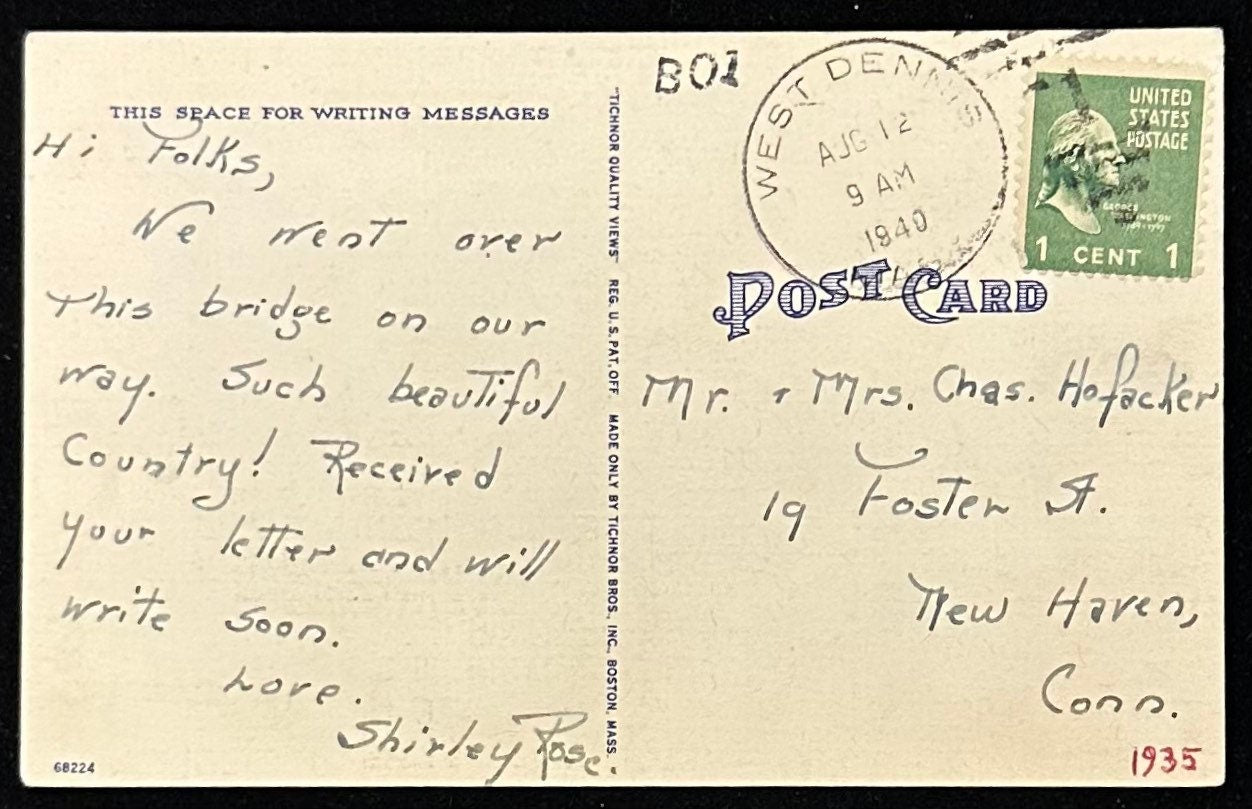 THIS SPACE FOR WRITING MESSAGES
Hi Folks,
We went over
this bridge on our
way. Such beautiful
Country! Received
your letter and will
write soon.
Love.
Shirley Rose.
68224
"TICHNOR QUALITY VIEWS" REG. U.S. PAT. OFF. MADE ONLY BY TICHNOR BROS., INC., BOSTON, MASS.
B01
WEST DENNIS
AUG 12
9 AM
1940
UNITED
STATES
POSTAGE
GEORGE
1 CENT 1
POST CARD
Mr. + Mrs. Chas. Hofacker
19 Foster St.
New Haven,
Conn.
1935